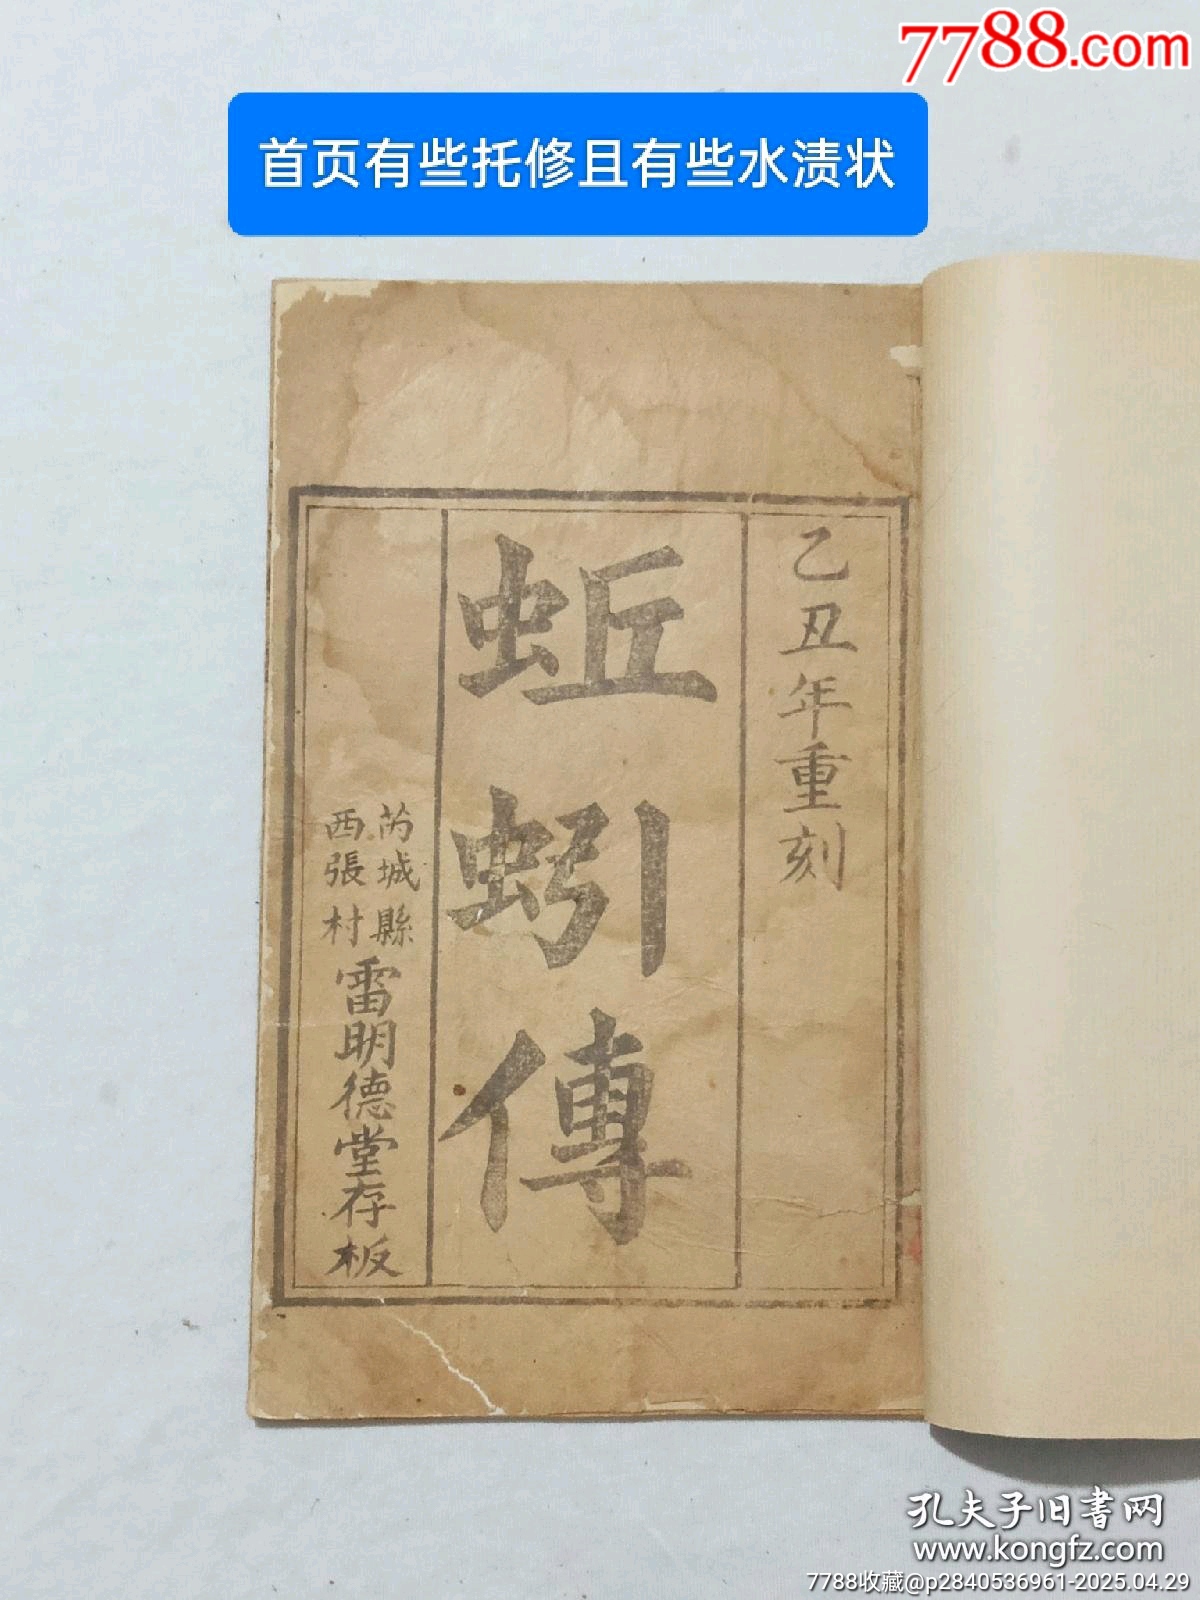 7788.com
首页有些托修且有些水渍状
乙丑年重刻
蚯蚓傳
芮城縣
西張村
雷明德堂存板
孔夫子旧書网
www.kongfz.com
7788收藏@p2840536961-2025.04.29